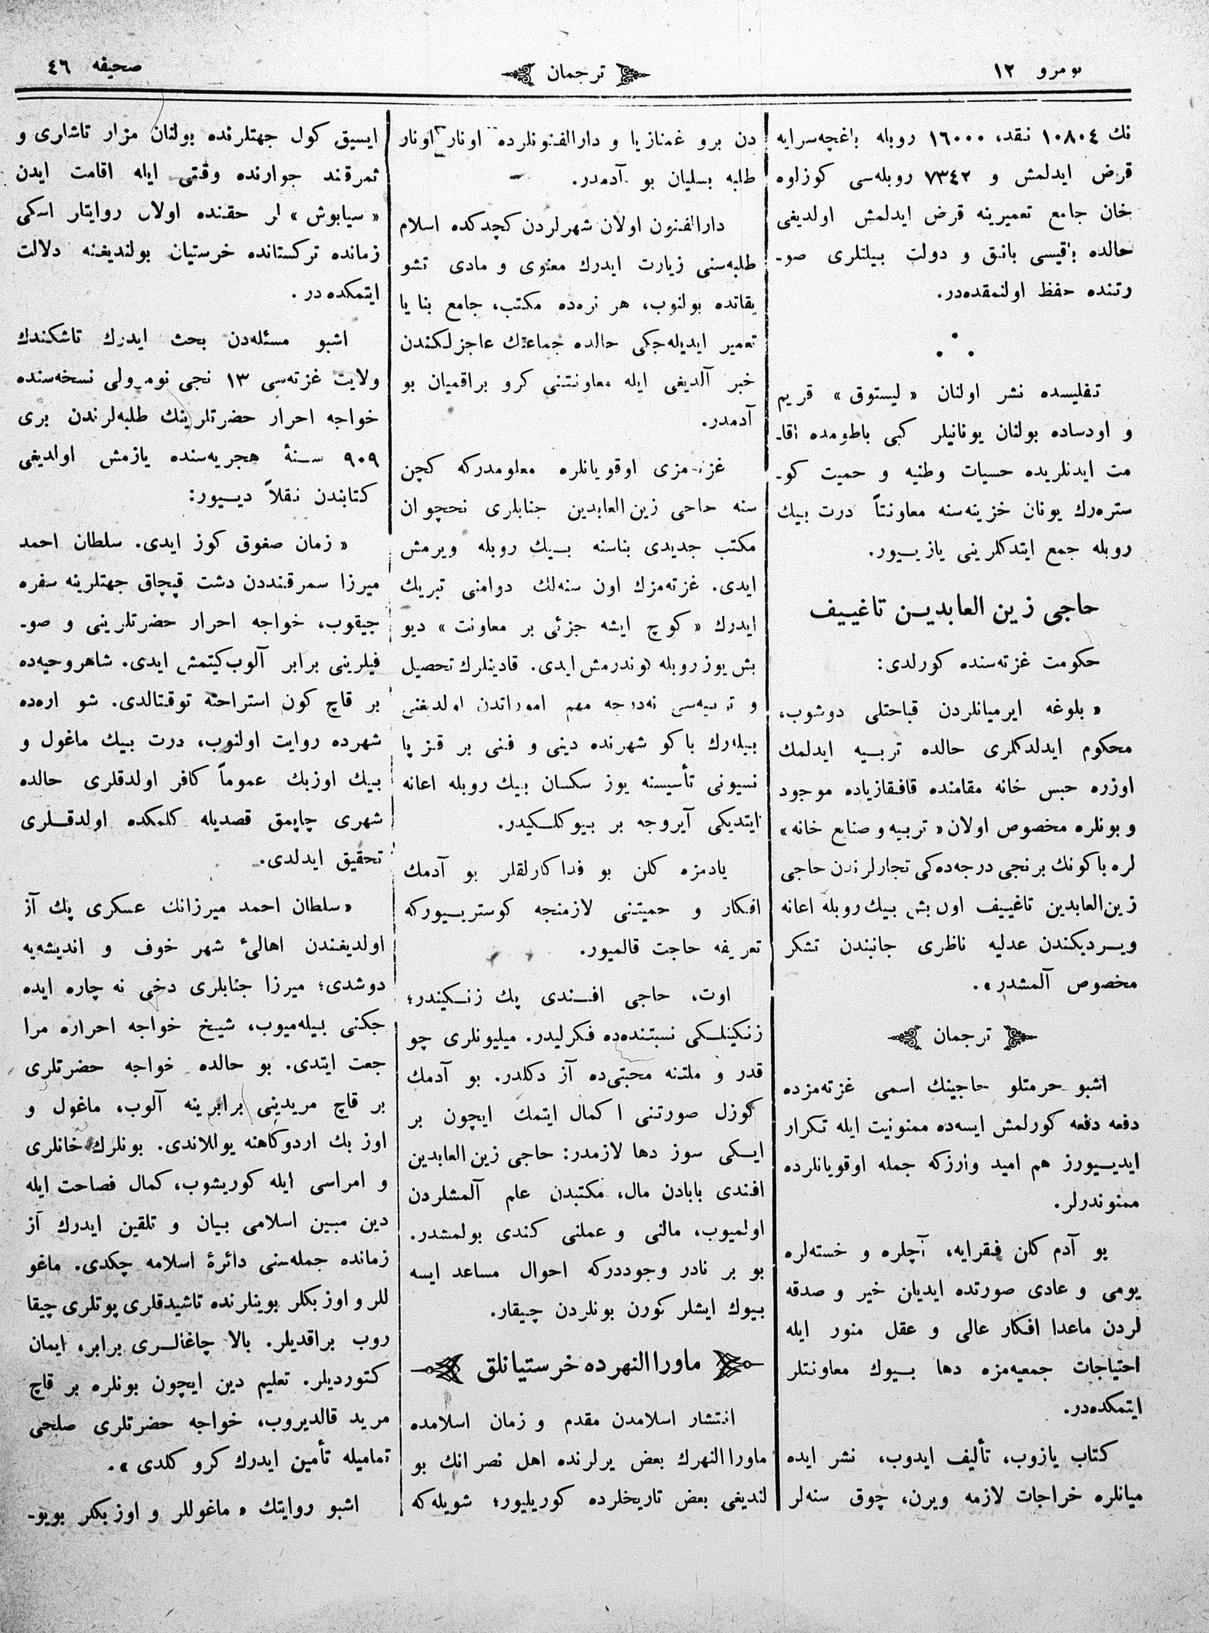 نومرو ١٢
ترجمان
صحیفه ٤٦
نك ١٠٨٠٤ نقد، ١٦٠٠٠ روبله باغچه‌سرایه
قرض ایدلمش و ٧٣٤٢ روبله‌سی کوزلوه
خان جامع تعمیرینه قرض ایدلمش اولدیغی
حالده باقیسی بانق و دولت بیلتلری صو-
رتنده حفظ اولنمقده‌در.
تفلیسده نشر اولنان « لیستوق » قریم
و اودساده بولنان یونانیلر کبی باطومده اقا-
مت ایدنلریده حسیات وطنیه و حمیت کو-
ستره‌رك یونان خزینه‌سنه معاونتاً درت بیك
روبله جمع ایتدکلرینی یازیبیور.
حاجی زین العابدیـن تاغییـف
حکومت غزته‌سنده کورلدی:
« بلوغه ایرمیانلردن قباحتلی دوشوب،
محکوم ایدلدکلری حالده تربـیه ایدلمك
اوزره حبس خانه مقامنده قافقازیاده موجود
و بونلره مخصوص اولان « تربیه و صنایع خانه »
لره باکونك برنجی درجه‌ده‌کی تجارلرزدن حاجی
زین‌العابدین تاغییف اون بش بیك روبله اعانه
ویـردیکندن عدلیه ناظری جانبندن تشکر
مخصوص آلمشدر».
ترجمان
اشبو حرمتلو حاجینك اسمی غزته‌مزده
دفعه دفعه کورلمش ایسه‌ده ممنونیت ایله تکرار
ایدیـیورز هم امید وارزکه جمله اوقویانلرده
ممنوندرلر.
بو آدم کلن فقرایه، آچلره و خسته‌لره
یومی و عادی صورتده ایدیان خیر و صدقه
لردن ماعدا افکار عالی و عقل منور ایله
احتیاجات جمعیه‌مزه دها بـیوك معاونتلر
ایتمکده‌در.
کتاب یازوب، تألیف ایدوب، نشر ایده
میانلره خراجات لازمه ویرن، چوق سنه‌لر
دن برو غمنازیا و دارالفنونلرده اونار اونار
طلبه بسلیان بو آدمدر.
دارالفنون اولان شهرلردن کچدکده اسلام
طلبه‌سنی زیارت ایدرك معنوی و مادی تشو
یقاتده بولنوب، هر نره‌ده مکتب، جامع بنا یا
تعمیر ایدیله‌جکی حالده جماعتك عاجزلکندن
خبر آلدیغی ایله معاونتنی کرو براقمیان بو
آدمدر.
غزته‌مزی اوقویانلره معلومدرکه کچن
سنه حاجی زین‌العابدین جنابلری نخچوان
مکتب جدیدی بناسنه بـیك روبله ویرمش
ایدی. غزته‌مزك اون سنه‌لك دوامنی تبریك
ایدرك « کوچ ایشه جزئی بر معاونت » دیو
بش یوز روبله کوندرمش ایدی. قادینلرك تحصیل
و تربیه‌سی نه‌درجه مهم اموراتدن اولدیغنی
بیله‌رك باکو شهرنده دینی و فنی بر قـز پا
نسیونی تأسیسنه یوز سکسان بیك روبله اعانه
ایتدیکی آیروجه بر بـیوکلـکیدر.
یادمزه کلن بو فداکارلقلر بو آدمك
افکار و حمیتنی لازمنجه کوستریـیورکه
تعریفه حاجت قالمیور.
اوت، حاجی افـندی پك زنـکیندر؛
زنکینلـکی نسبتنده‌ده فکرلیدر. میلیونلری چو
قدر و ملتنه محبتی‌ده آز دکلدر. بو آدمك
کوزل صورتنی اکمال ایتمك ایچون بر
ایـکی سوز دها لازمدر: حاجی زین‌العابدین
افندی بابادن مال، مکتبدن علم آلمشلردن
اولمیوب، مالنی و عملنی کندی بولمشدر.
بو بر نادر وجوددرکه احوال مساعد ایسه
بیوك ایشلر کورن بونلردن چیقار.
ماوراالنهرده خرستیانلق
انتشار اسلامدن مقدم و زمان اسلامده
ماوراالنهرك بعض یرلرنده اهل نصرانك بو
لندیغی بعض تاریخلرده کوریلیور؛ شویله‌که
ایسیق کول جهتلرنده بولنان مزار تاشاری و
ثمرقند جوارنده وقتی ایله اقامت ایدن
« سیابوش » لر حقنده اولان روایتار اسکی
زمانده ترکستانده خرستیان بولندیغنه دلالت
ایتمکده در.
اشبو مسئله‌دن بحث ایدرك تاشکندك
ولایت غزته‌سی ١٣ نجی نومرولی نسخه‌سنده
خواجه احرار حضرتلرینك طلبه‌لرندن بری
٩٠٩ سـنهٔ هجریه‌سنده یازمش اولدیغی
کتابندن نقلاً دیـیور:
« زمان صفوق کوز ایدی. سلطان احمد
میرزا سمرقنددن دشت قپچاق جهتلرینه سفره
جیقوب، خواجه احرار حضرتلرینی و صو-
فیلرینی برابر آلوب‌کیتمش ایدی. شاهروحیه‌ده
بر قاچ کون استراحته توقتالدی. شو اره‌ده
شهرده روایت اولنوب، درت بیك ماغول و
بیك اوزبك عموماً کافر اولدقلری حالده
شهری چاپمق قصدیله کلمکده اولدقـلری
تحقیق ایدلدی.
« سلطان احمد میرزانك عسکری پك آز
اولدیغندن اهالئ شهر خوف و اندیشه‌یه
دوشدی؛ میرزا جنابلری دخی نه چاره ایده
جکنی بیله‌میوب، شیخ خواجه احراره مرا
جعت ایتدی. بو حالده خواجه حضرتلری
بر قاچ مریدینی برابرینه آلوب، ماغول و
اوز بك اردوکاهنه یوللاندی. بونلرك خانلری
و امراسی ایله کوریشوب، کمال فصاحت ایله
دین مبین اسلامی بیان و تلقین ایدرك آز
زمانده جمله‌سنی دائرهٔ اسلامه چکدی. ماغو
للر و اوزبکلر بوینلرنده تاشیدقلری پوتلری چیقا
روب براقدیلر. بالا چاغالـری برابر، ایمان
کتوردیلر. تعلیم دین ایچون بونلره بر قاچ
مرید قالدیروب، خواجه حضرتلری صلحی
تمامیله تأمین ایدرك کرو کلدی ».
اشبو روایتك « ماغوللر و اوزبکلر بویو-